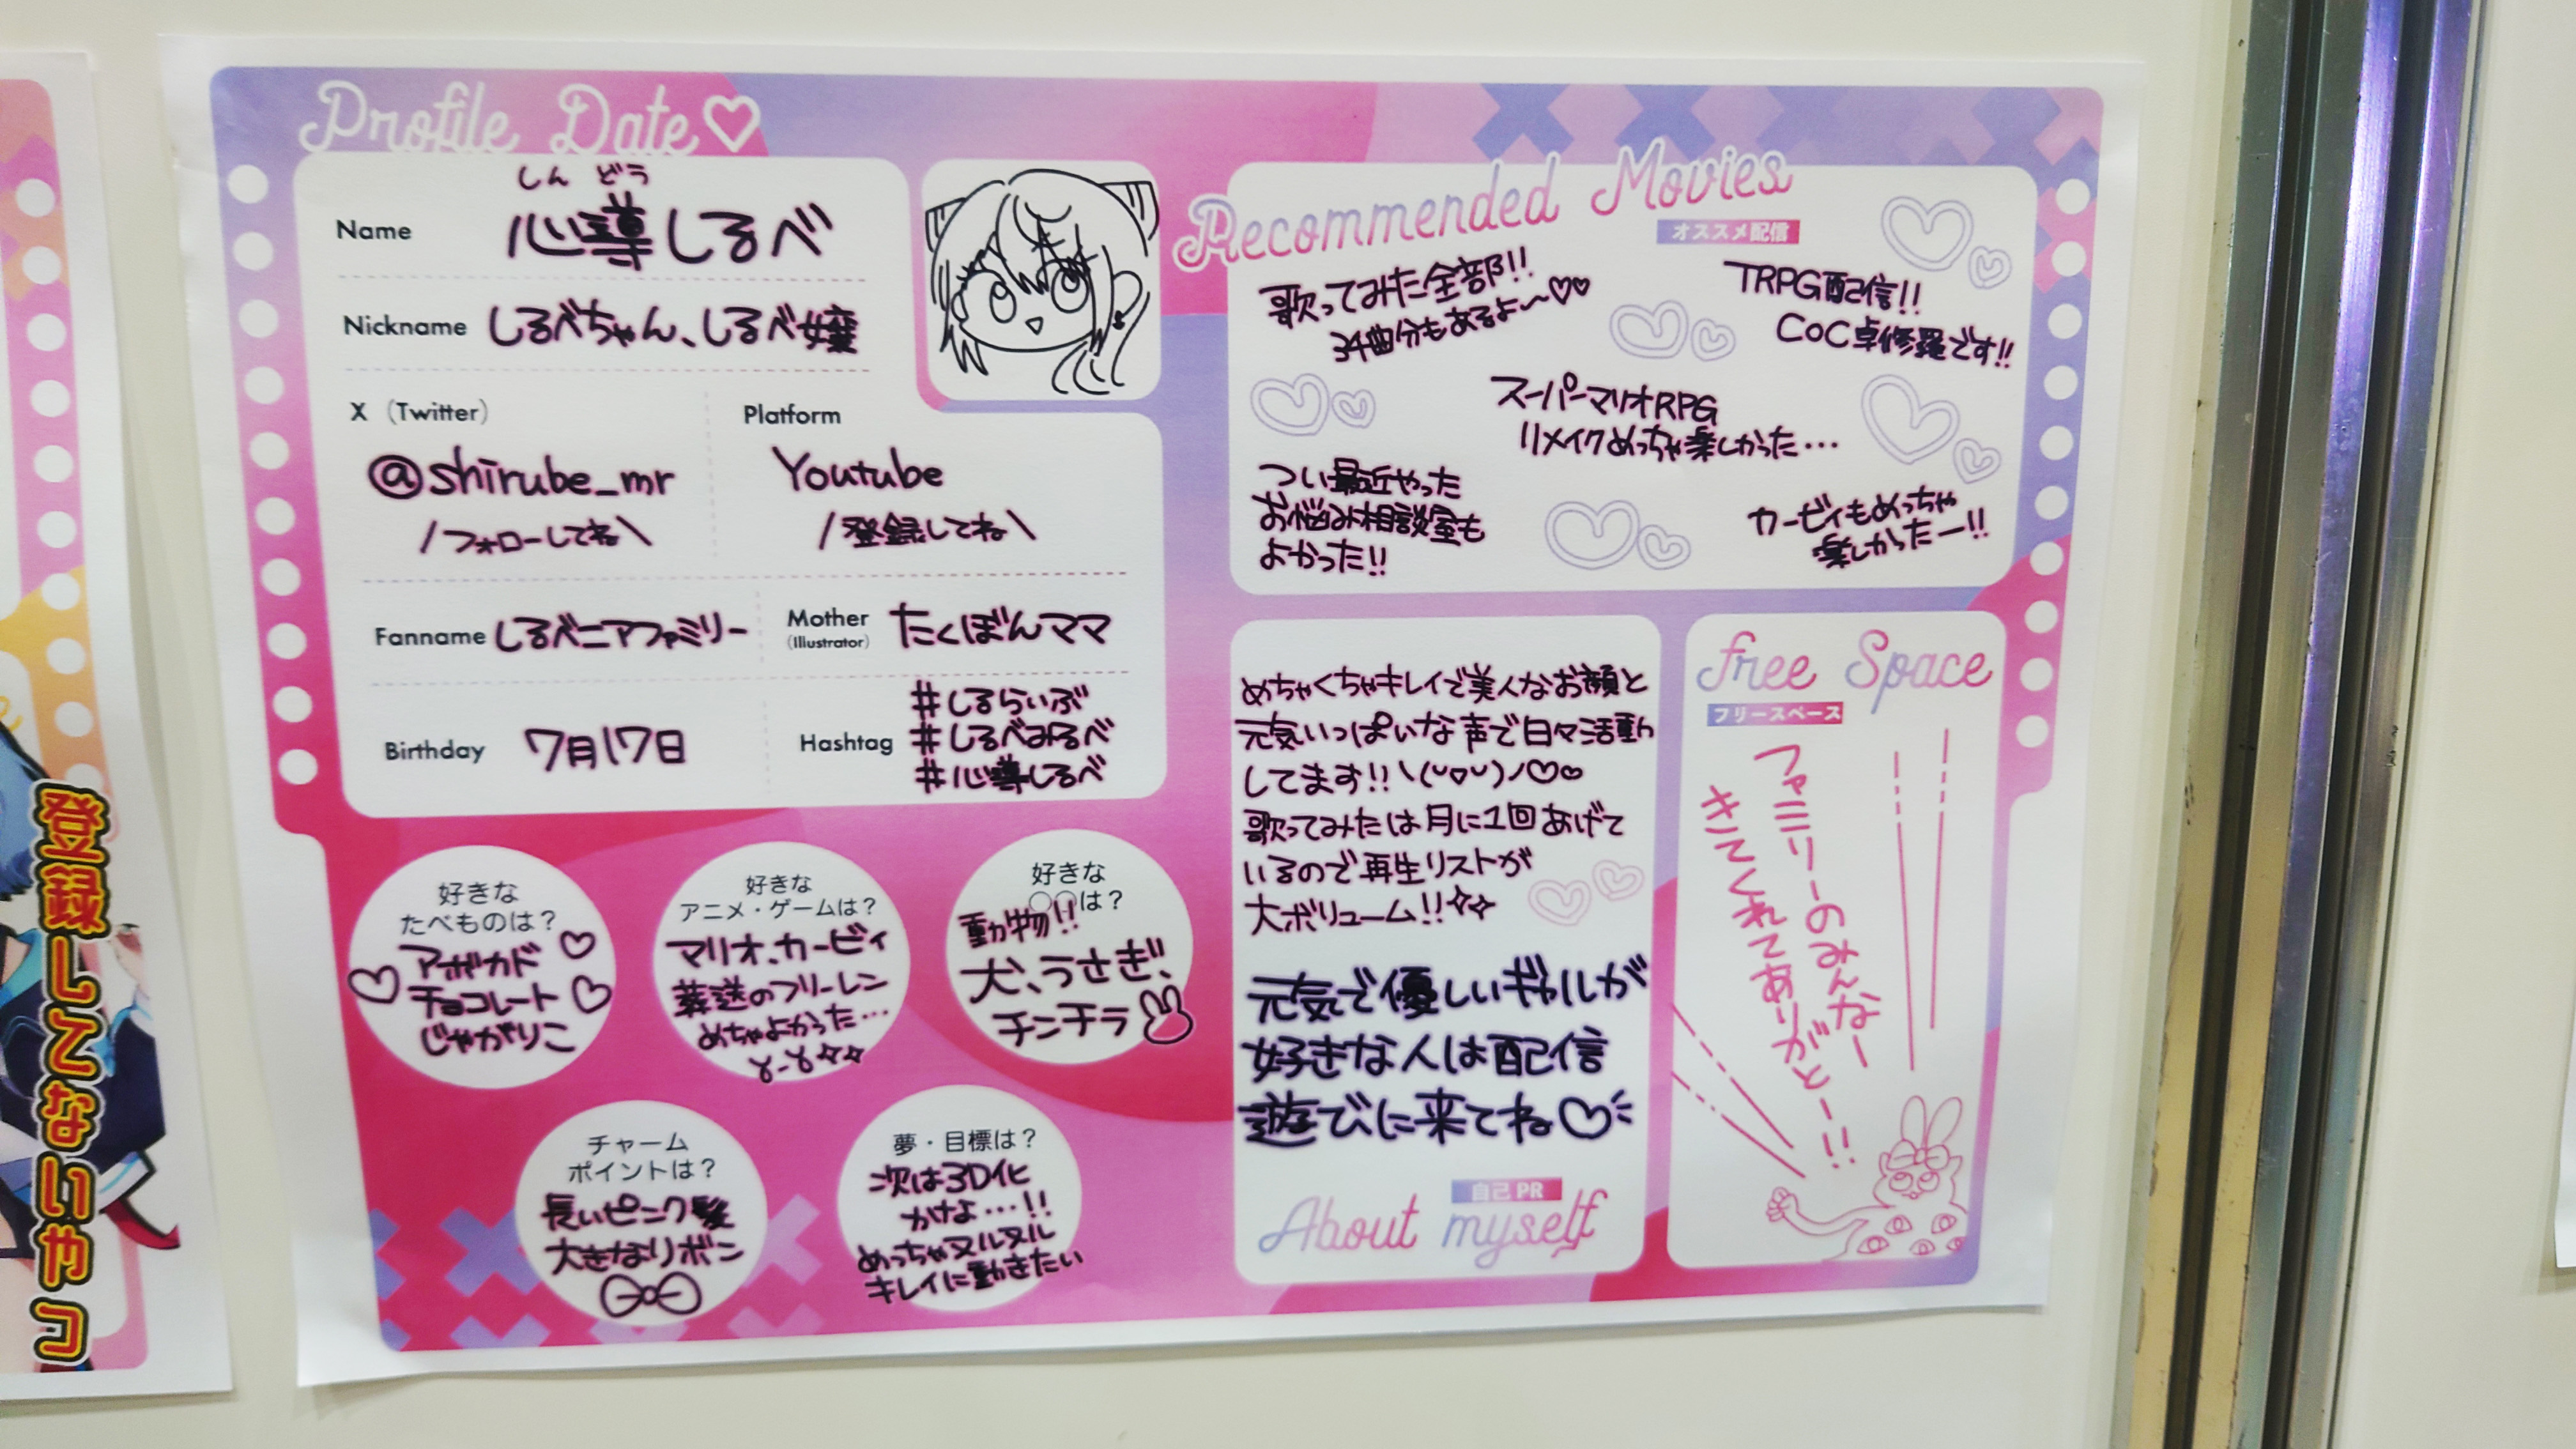 Profile Date
しんどう
Name 心導しるべ
Nickname しるべちゃん、しるべ嬢
X (Twitter)
@shirube_mr
/フォローしてね\
Platform
Youtube
/登録してね\
Fanname しるべニアファミリー
Mother
(Illustrator)
たくぼんママ
Birthday 7月17日
Hashtag
#しるらいぶ
#しるべみるべ
#心導しるべ
好きな
たべものは?
アボカド
チョコレート
じゃがりこ
好きな
アニメ・ゲームは?
マリオ、カービィ
葬送のフリーレン
めちゃよかった…
好きな
○○は?
動物!!
犬、うさぎ、
チンチラ
チャーム
ポイントは?
長いピンク髪
大きなリボン
夢・目標は?
次は3D化
かなよ…!!
めっちゃヌルヌル
キレイに動きたい
Recommended Movies
オススメ配信
歌ってみた全部!!
34曲分もあるよ〜♡♡
TRPG配信!!
CoC卓修羅です!!
スーパーマリオRPG
リメイクめっちゃ楽しかった…
つい最近やった
お悩み相談室も
よかった!!
カービィもめっちゃ
楽しかったー!!
めちゃくちゃキレイで美人なお顔と
元気いっぱいな声で日々活動
してます!!
歌ってみたは月に1回あげて
いるので再生リストが
大ボリューム!!
元気で優しいギャルが
好きな人は配信
遊びに来てね♡
自己PR
About myself
Free Space
フリースペース
ファミリーのみんなー
きてくれてありがとー!!
登録してないやつ